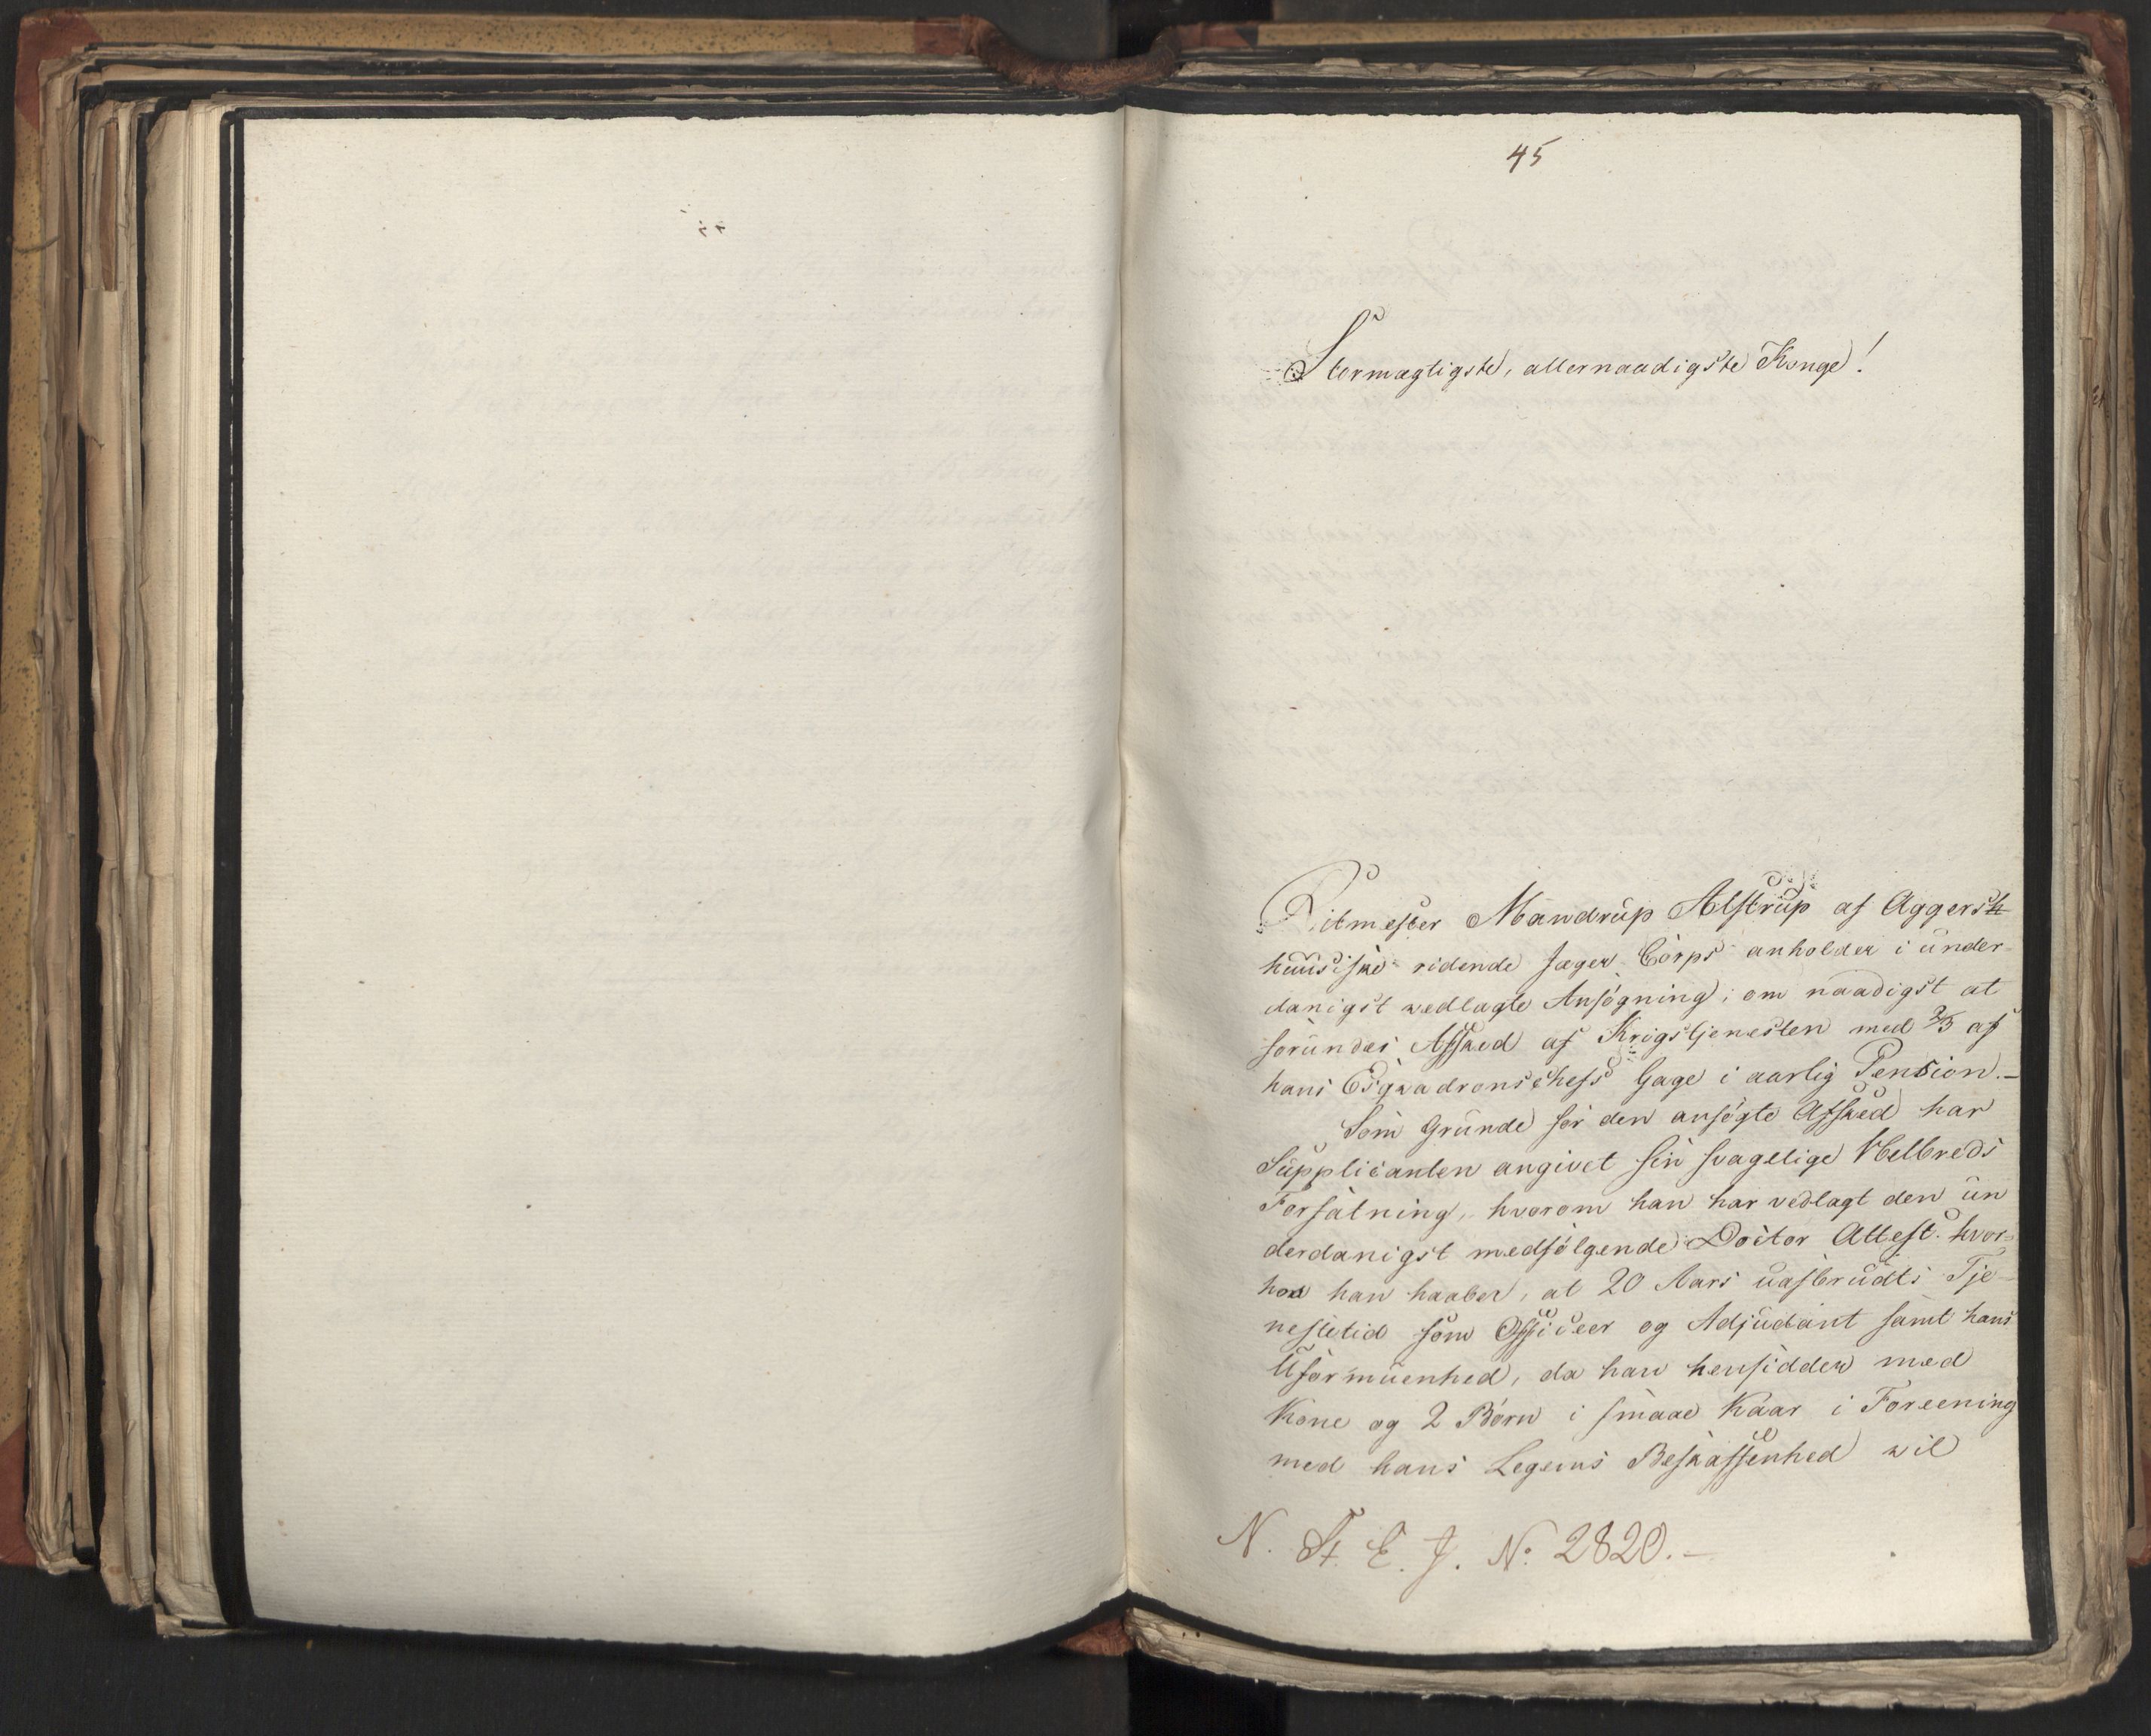 45
Stormægtigste, allernaadigste Konge!
Ritmester Mandrup Alstrup af Aggers
huusiske ridende Jæger Corps anholder i under-
danigst vedlagte Ansøgning, om naadigst at
forundes Afsked af Krigstjenesten med 2/3 af
hans Esqvadronschefs Gage i aarlig Pension.-
Som Grunde for den ansøgte Afsked har
Supplicanten angivet sin svagelige Helbreds
Forfatning, hvorom han har vedlagt den un
derdanigst medfølgende Doctor Attest. hvor-
hos han haaber, at 20 Aars uafbrudts Tje-
nestetid som Officeer og Adjudant samt hans
Uformuenhed, da han hensidder med
Kone og 2 Børn i smaae Kaar i Foreening
med hans Legems Beskaffenhed vil
N. St. E. J. No. 2820.-